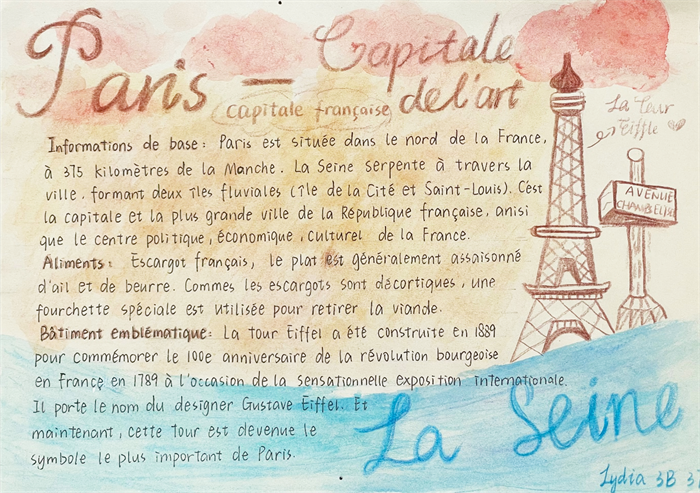 Paris — Capitale
de l'art
capitale française
La Tour
Eiffle
AVENUE
Informations de base : Paris est située dans le nord de la France,
à 375 kilomètres de la Manche. La Seine serpente à travers la
ville, formant deux îles fluviales (île de la Cité et Saint-Louis). C'est
la capitale et la plus grande ville de la République française, anisi
que le centre politique, économique, culturel de la France.
Aliments : Escargot français, le plat est généralement assaisonné
d'ail et de beurre. Commes les escargots sont décortiques, une
fourchette spéciale est utilisée pour retirer la viande.
Bâtiment emblématique : La tour Eiffel a été construite en 1889
pour commémorer le 100e anniversaire de la révolution bourgeoise
en France en 1789 à l'occasion de la sensationnelle exposition internationale.
Il porte le nom du designer Gustave Eiffel. Et
maintenant, cette tour est devenue le
symbole le plus important de Paris.
La Seine
Lydia 3B